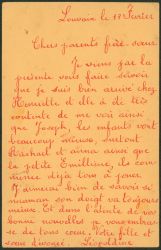 Louvain le 18 Février
Chers parents frère, sœur
Je viens par la
présente vous faire savoir
que je suis bien arrivé chez
Romuelle et elle a de très
contente de me voir ainsi
que Joseph, les enfants vont
beaucoup mieux, surtout
Rachael et aussi
la petite Emilienne, ils com
mence déjà tous à jouer
J'aimerai bien de savoir si
maman son doigt va toujours
mieux. Et dans l'attente de vos
bonne nouvelles je vous embras
se de tous cœur Votre fille et
sœur dévouée. Léopoldine